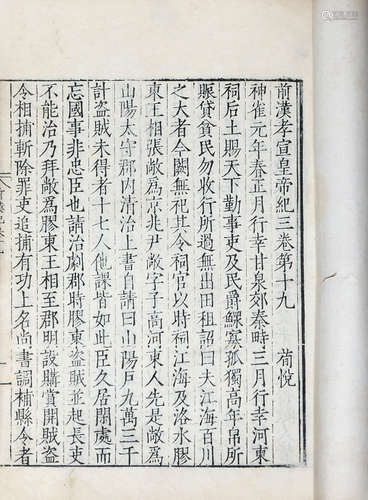 前漢孝宣皇帝紀三卷第十九
荀悅
神雀元年春正月行幸甘泉郊泰畤三月行幸河東
祠后土賜天下勤事吏及民爵鰥寡孤獨高年帛所
賑貸貧民勿收行所過無出田租詔曰夫江海百川
之大者今闕無祀其令祠官以時祠江海及洛水膠
東王相張敞為京兆尹敞字子高河東人先是敞為
山陽太守郡內清治上書自請曰山陽戶九萬三千
計盜賊未得者十七人他課皆如此臣久居閑處而
忘國事非忠臣也請治劇郡時膠東盜賊並起長吏
不能治乃拜敞為膠東王相至郡明設購賞開賊盜
令相捕斬除罪吏追捕有功上名尚書調補縣令者